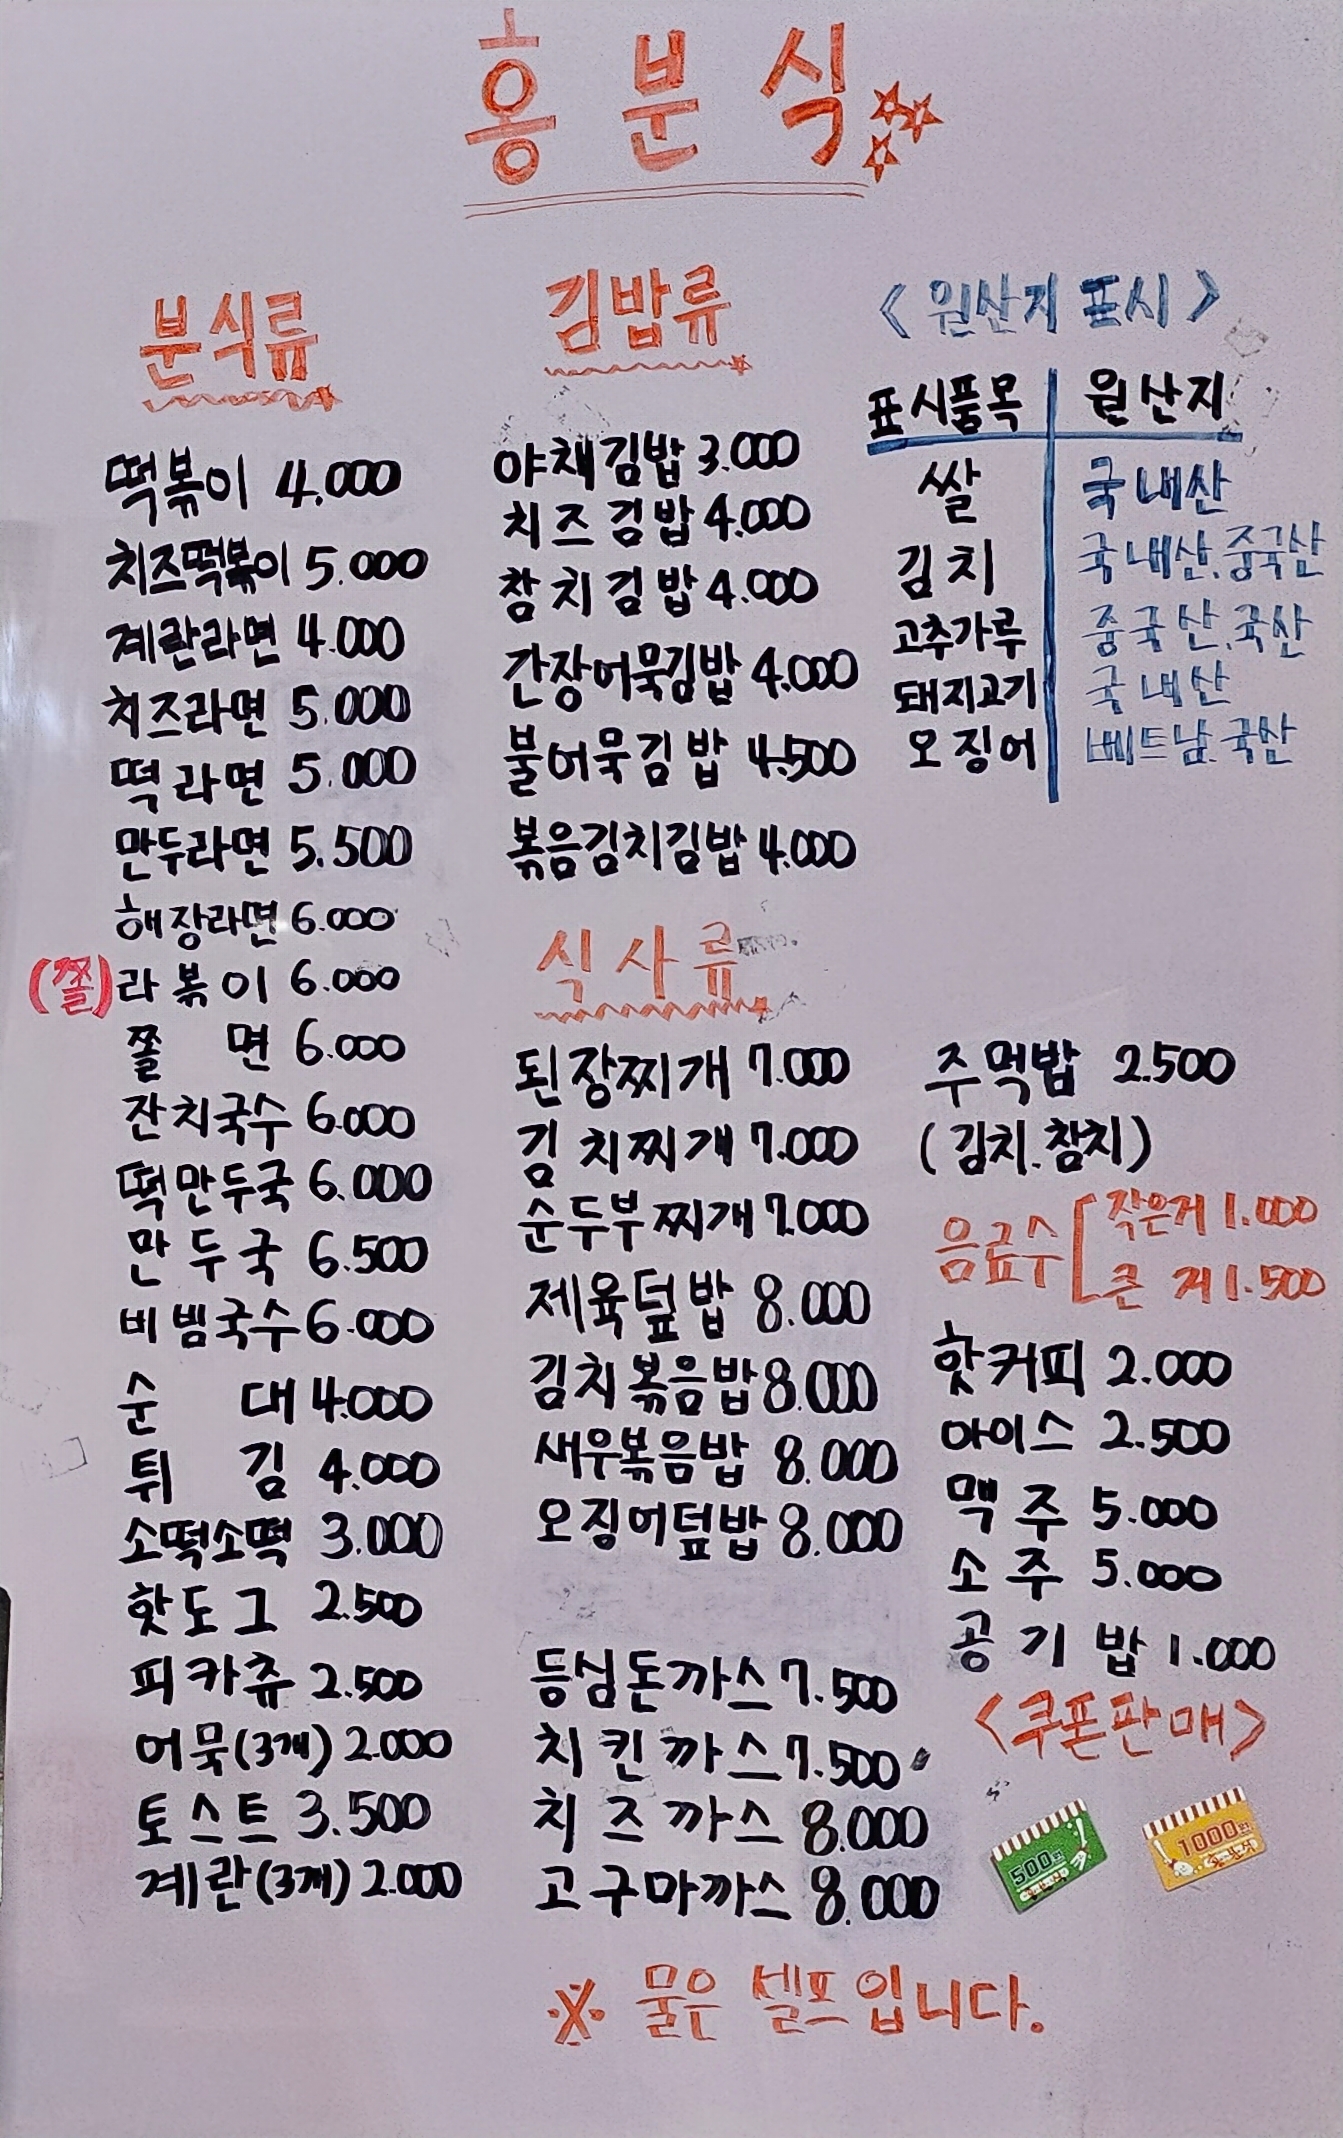 홍분식
분식류
떡볶이 4.000
치즈떡볶이 5.000
계란라면 4.000
치즈라면 5.000
떡라면 5.000
만두라면 5.500
해장라면 6.000
(쫄)라볶이 6.000
쫄면 6.000
잔치국수 6.000
떡만두국 6.000
만두국 6.500
비빔국수 6.000
순대 4.000
튀김 4.000
소떡소떡 3.000
핫도그 2.500
피카츄 2.500
어묵(3개) 2.000
토스트 3.500
계란(3개) 2.000
김밥류
야채김밥 3.000
치즈김밥 4.000
참치김밥 4.000
간장어묵김밥 4.000
불어묵김밥 4.500
볶음김치김밥 4.000
식사류
된장찌개 7.000
김치찌개 7.000
순두부찌개 7.000
제육덮밥 8.000
김치볶음밥 8.000
새우볶음밥 8.000
오징어덮밥 8.000
등심돈까스 7.500
치킨까스 7.500
치즈까스 8.000
고구마까스 8.000
<원산지 표시>
표시품목 원산지
쌀 국내산
김치 국내산.중국산
고추가루 중국산.국산
돼지고기 국내산
오징어 베트남.국산
주먹밥 2.500
(김치.참치)
음료수 [작은거 1.000
큰거 1.500
핫커피 2.000
아이스 2.500
맥주 5.000
소주 5.000
공기밥 1.000
<쿠폰판매>
500원
1000원
※ 물은 셀프입니다.